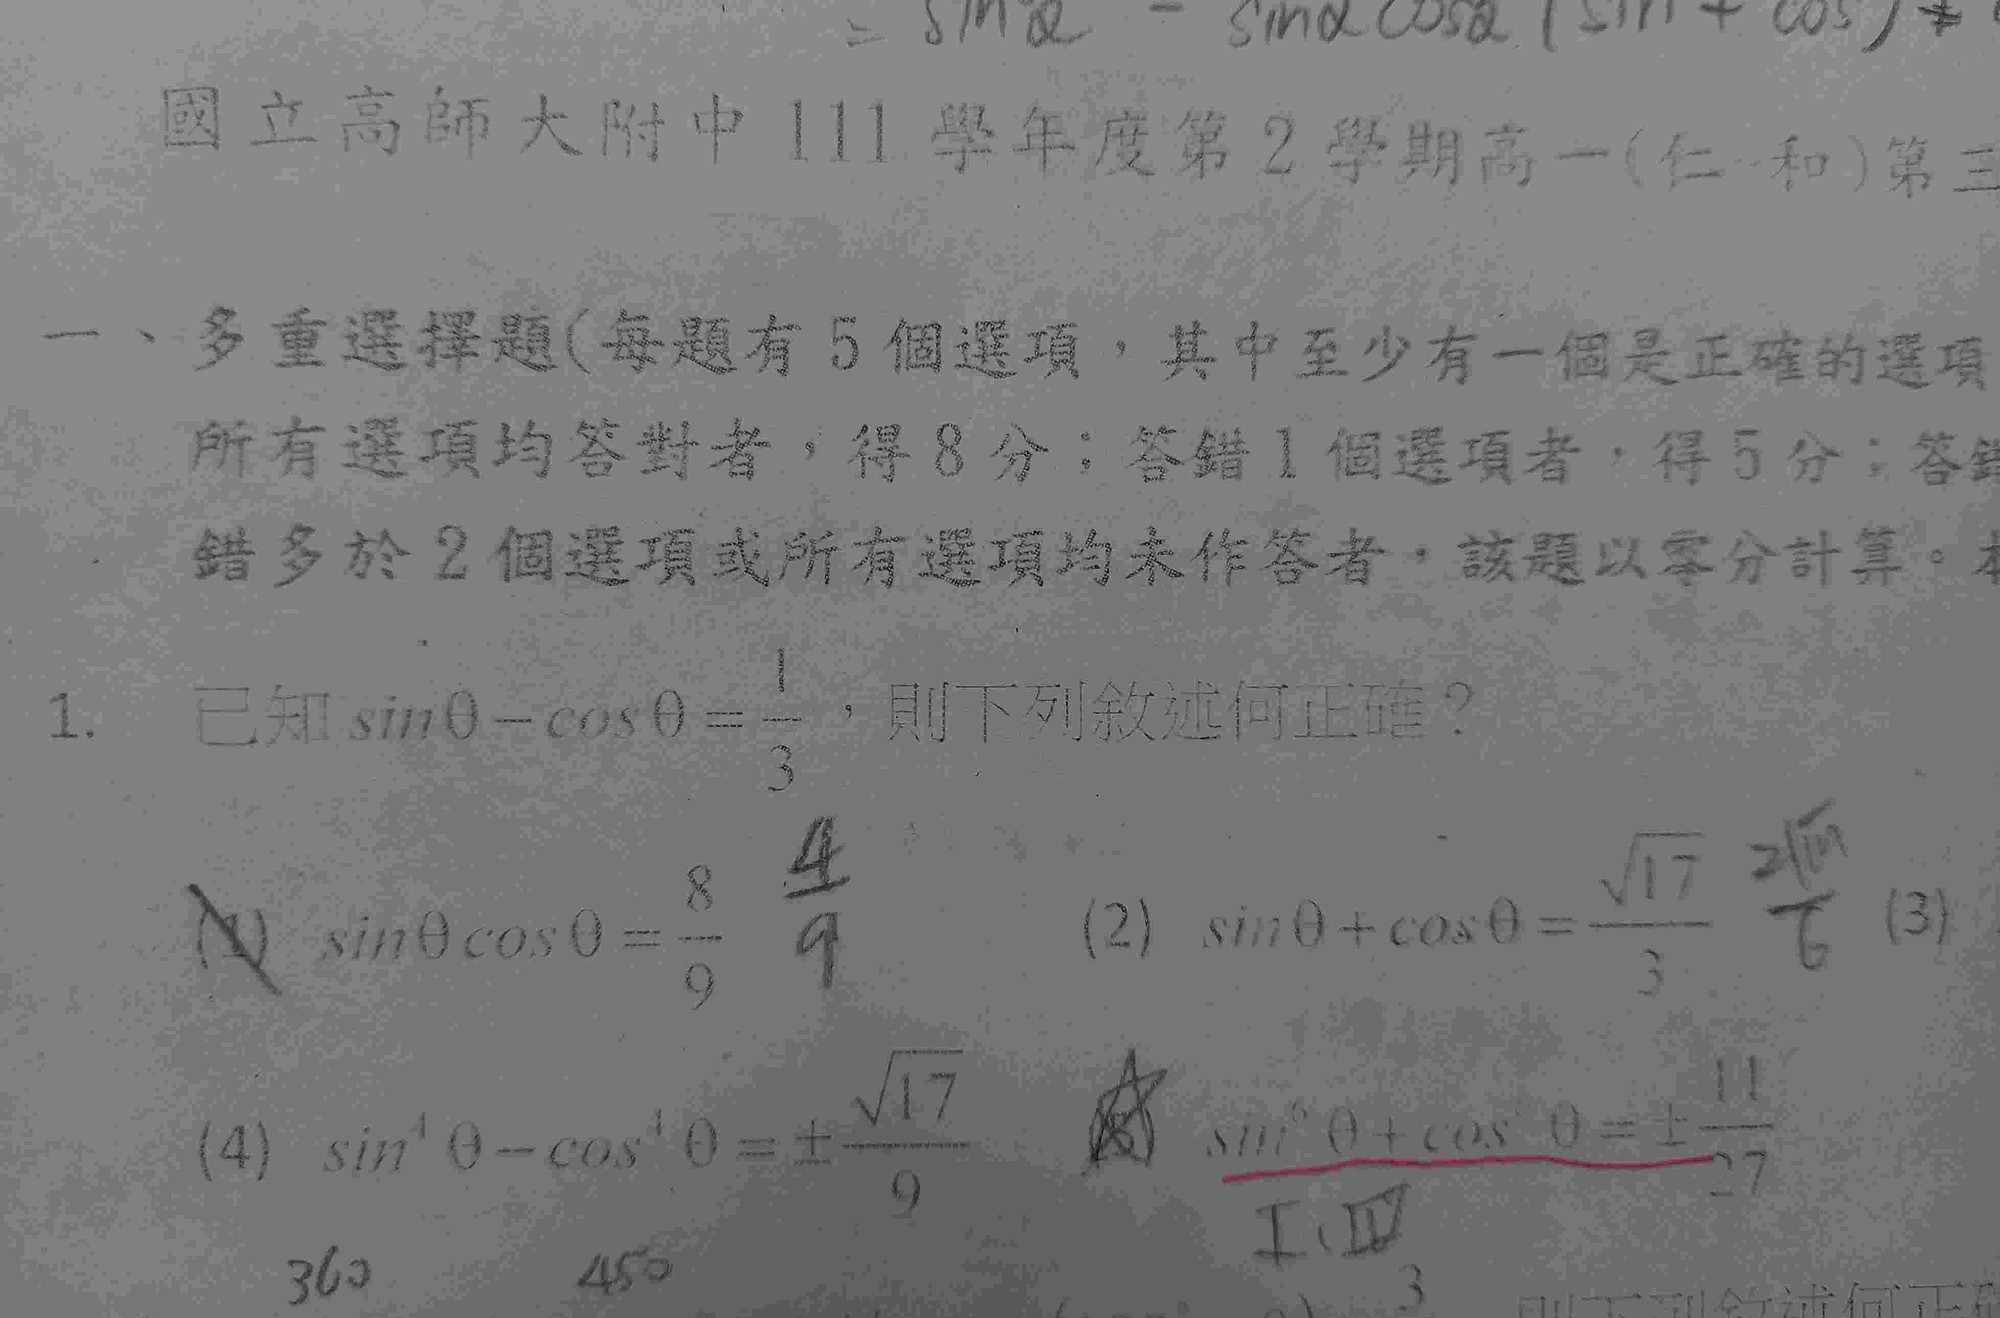 = sin²α - sinα cosα (sin + cos) +
國立高師大附中 111 學年度第 2 學期高一(仁、和)第三
一、多重選擇題(每題有 5 個選項，其中至少有一個是正確的選項
所有選項均答對者，得 8 分；答錯 1 個選項者，得 5 分；答錯
錯多於 2 個選項或所有選項均未作答者，該題以零分計算。本
1. 已知 sinθ－cosθ＝1/3，則下列敘述何正確？
(1) sinθcosθ＝8/9 4/9 (2) sinθ＋cosθ＝√17/3 (3)
(4) sin⁴θ－cos⁴θ＝±√17/9 sin⁶θ＋cos⁶θ＝±11/27
I、IV
360 450
3
則下列敘述何正確